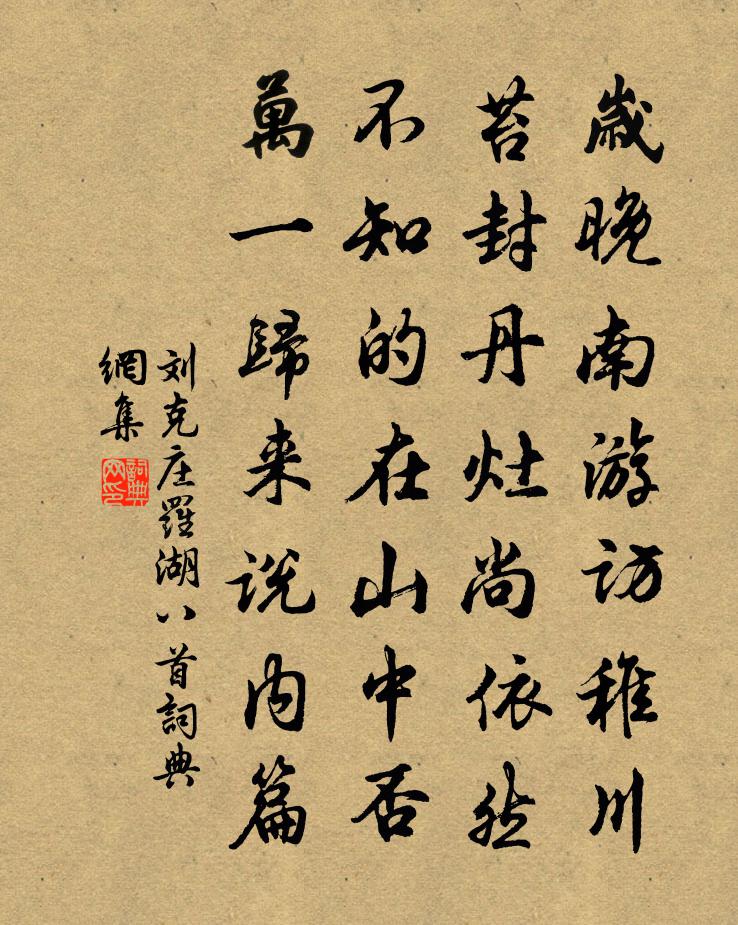 歲晚南游訪稚川
苔封丹灶尚依然
不知的在山中否
萬一歸来説内篇
刘克庄羅湖八首詞典
網集
詞典
网印